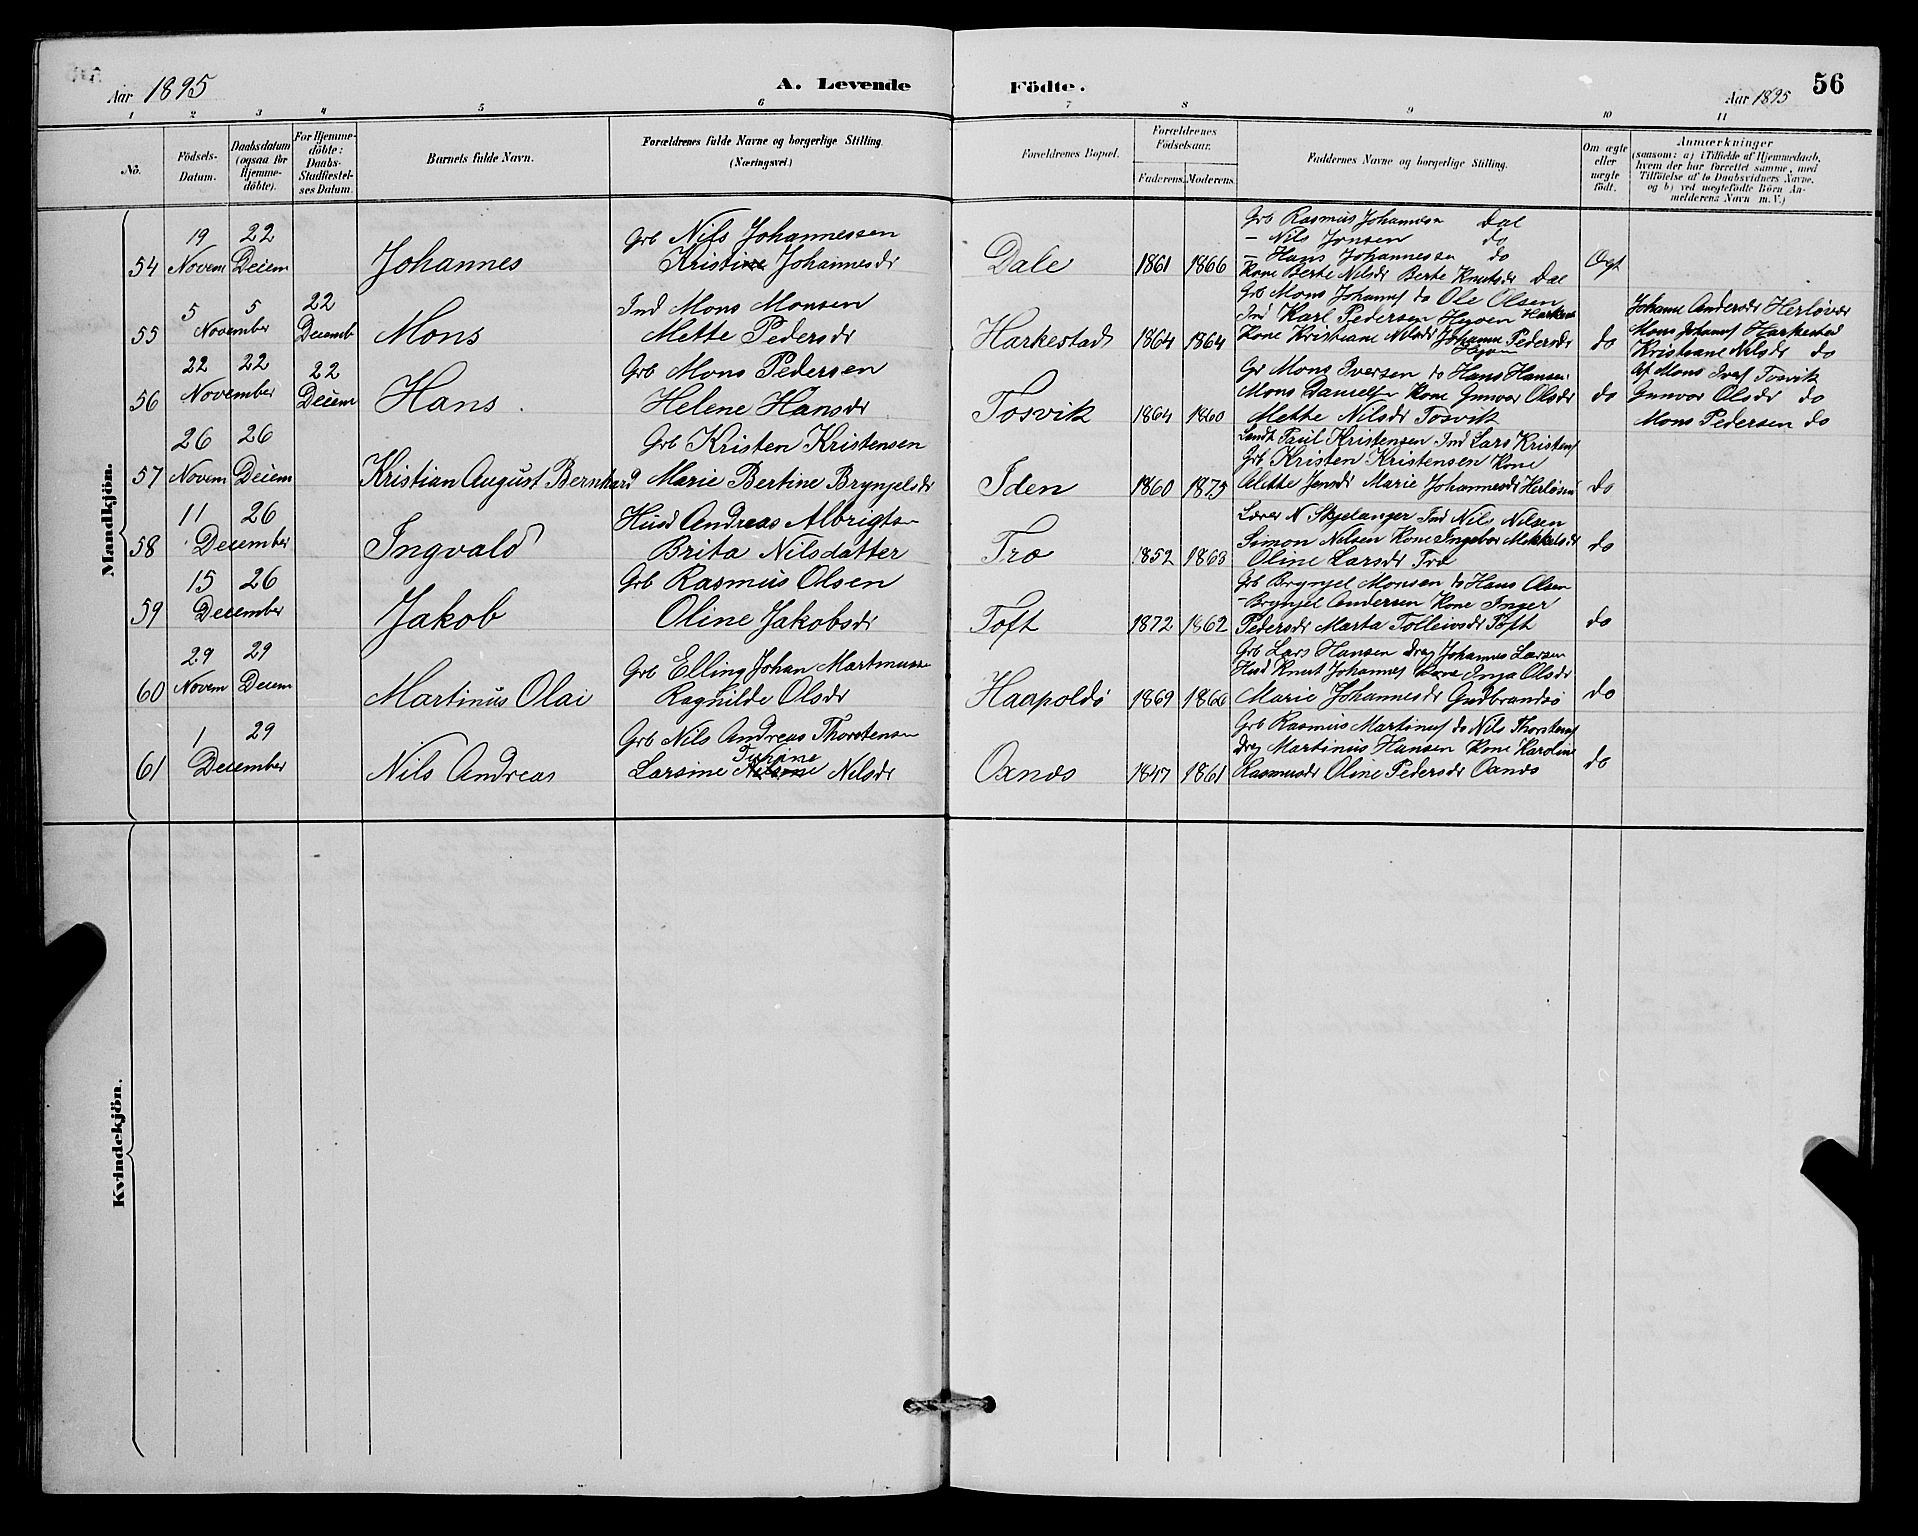 Aar 1895
A. Levende
Födte.
Aar 1895
56
1 2 3 4 5 6 7 8 9 10 11
No.
Födsels-Datum.
Daabsdatum (ogsaa for Hjemme-döbte).
For Hjemme-döbte: Daabs-Stadfæstel-ses Datum.
Barnets fulde Navn.
Forældrenes fulde Navne og borgerlige Stilling. (Næringsvei)
Forældrenes Bopæl.
Forældrenes Födselsaar.
Faderens. Moderens.
Faddernes Navne og borgerlige Stilling.
Om ægte eller uægte födt.
Anmærkninger
(saasom: a) i Tilfælde af Hjemmedaab,
hvem der har forrettet samme, med
Tilföielse af to Daabsvidners Navne.
og b) ved uægtefödte Börn An-
melderens Navn m. V.)
Mandkjön.
54 19 Novem 22 Decem Johannes
Grb Nils Johannessen
Kristine Johannesdr
Dale 1861 1866
Grb Rasmus Johannesen Dal
- Nils Jonsen do
- Hans Johannessen do
Kone Berte Nilsdr Berte Knutsdr Dal
Ægt
55 5 5 November 22 Decemb Mons
Ind Mons Monsen
Mette Pedersdr
Harkestad 1864 1864
Grb Mons Johans do Ole Olsen
Ind Karl Pedersen
Kone Kristiane Nilsdr Johanne Pedersdr
do
Johanne Andersdr
Mons Johans Harkestad
Kristiane Nilsdr do
56 22 22 November 22 Decem Hans.
Grb Mons Pedersen
Helene Hansdr
Tosvik 1864 1860
Gr Mons Iversen do Hans Hansen
Mons Daniels Kone Gunvor Olsdr
Mette Nilsdr Tosvik
do
Af Mons Ivers Tosvik
Gunvor Olsdr do
Mons Pedersen do
57 26 Novem 26 Decem Kristian August Bernhard
Grb Kristen Kristensen
Marie Bertine Brynjelsdr
Iden 1860 1875
Landh Paul Kristensen Ind Lars Kristens
Grb Kristen Kristensen Kone
Alette Jensdr Marie Johannesdr
do
58 11 26 December Ingvald
Husd Andreas Albrigtsen
Brita Nilsdatter
Tro 1852 1863
Lærer N Skjelanger Ind Nils Nilsen
Simon Nilsen Kone Ingebor Mikkelsdr
Oline Larsdr Tro
do
59 15 26 December Jakob
Grb Rasmus Olsen
Oline Jakobsdr
Toft 1872 1862
Grb Brynjel Monsen do Hans Olsen
- Brynjel Andersen Kone Inger
Pedersdr Marta Tolleivsdr Toft
do
60 29 Novem 29 Decem Martinus Olai
Grb Elling Johan Martinussen
Ragnilde Olsdr
Haapoldö 1869 1866
Grb Lars Hansen Drg Johannes Larsen
Husd Knut Johannes Kone Inga Olsdr
Marie Johannesdr Gudbrandsö
do
61 1 29 December Nils Andreas
Grb Nils Andreas Thorstensen
Larsine Nilsdr
Oxnes 1847 1861
Grb Rasmus Martinus do Nils Thorstens
Drg Martinus Hansen Kone Karoline
Rasmusdr Oline Pedersdr Oxnes
do
Kvindekjön.